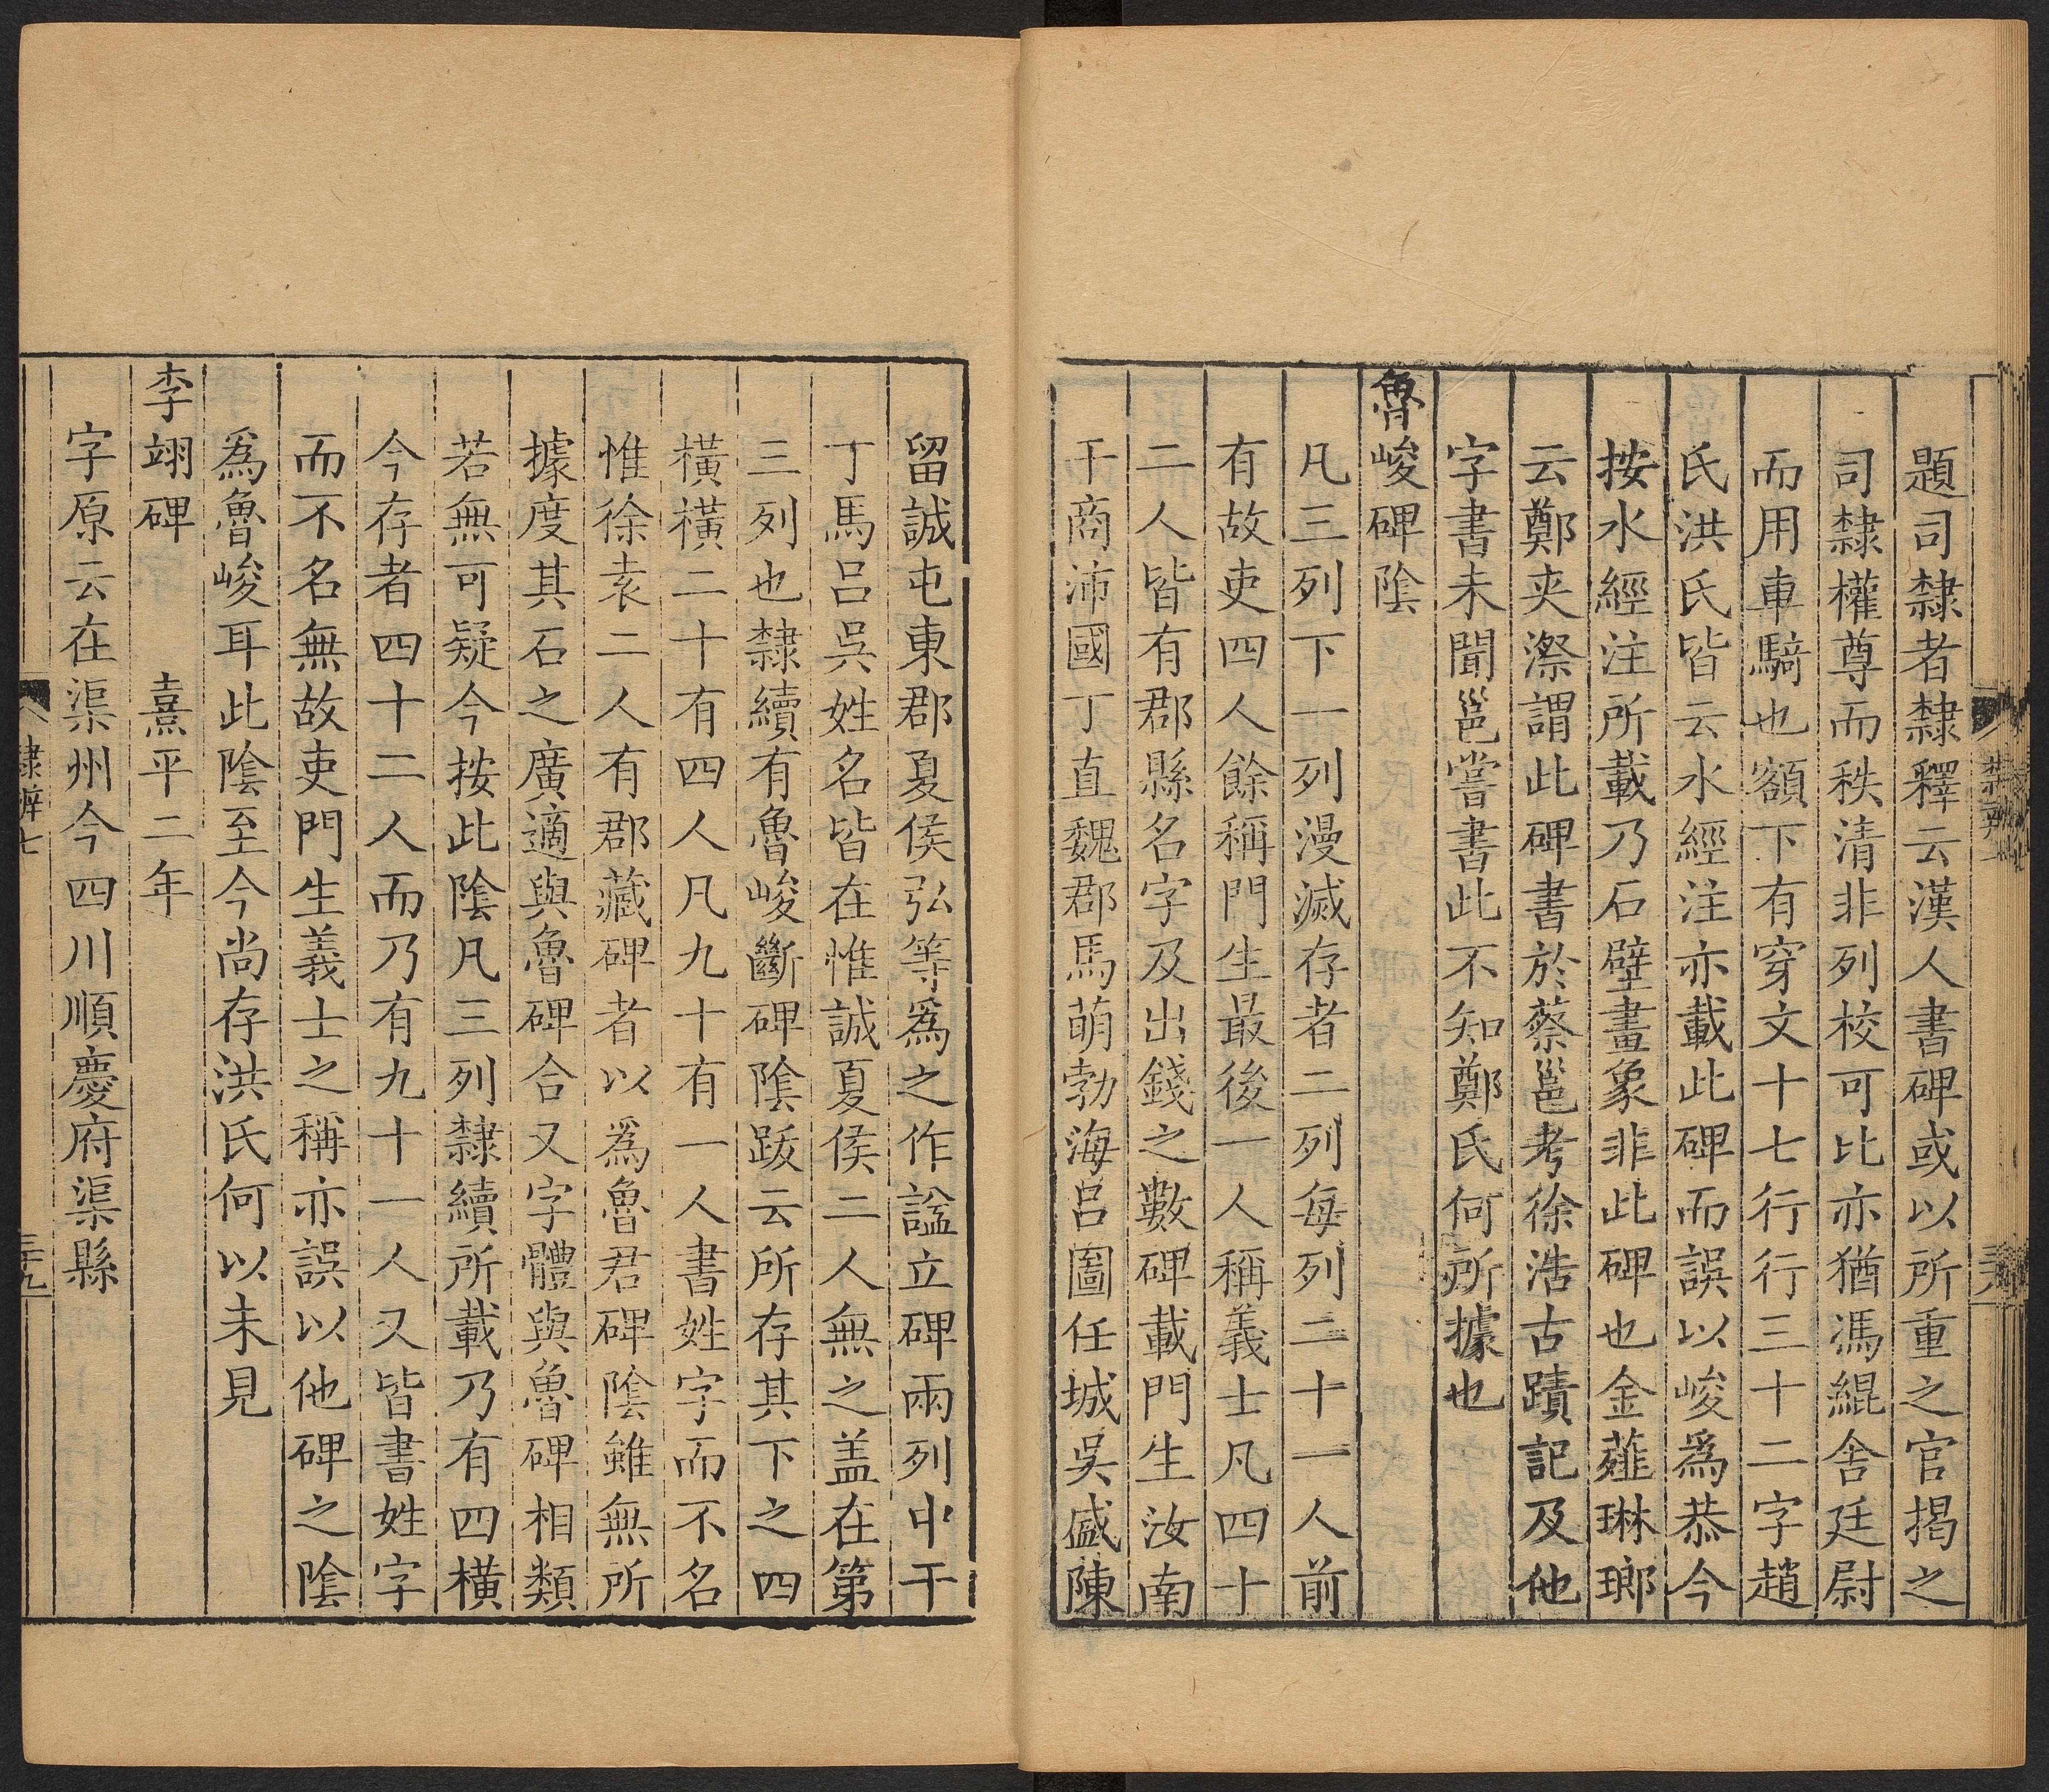 題司隸者隸釋云漢人書碑或以所重之官揭之
司隸權尊而秩清非列校可比亦猶馮緄舍廷尉
而用車騎也額下有穿文十七行行三十二字趙
氏洪氏皆云水經注亦載此碑而誤以峻爲恭今
按水經注所載乃石壁畫象非此碑也金薤琳瑯
云鄭夾漈謂此碑書於蔡邕考徐浩古蹟記及他
字書未聞邕嘗書此不知鄭氏何所據也
魯峻碑陰
凡三列下一列漫滅存者二列每列二十一人前
有故吏四人餘稱門生最後一人稱義士凡四十
二人皆有郡縣名字及出錢之數碑載門生汝南
干商沛國丁直魏郡馬萌勃海呂圖任城吳盛陳
留誠屯東郡夏侯弘等爲之作謚立碑兩列中干
丁馬呂吳姓名皆在惟誠夏侯二人無之盖在第
三列也隸續有魯峻斷碑陰跋云所存其下之四
橫橫二十有四人凡九十有一人書姓字而不名
惟徐袁二人有郡藏碑者以爲魯君碑陰雖無所
據度其石之廣適與魯碑合又字體與魯碑相類
若無可疑今按此陰凡三列隸續所載乃有四橫
今存者四十二人而乃有九十一人又皆書姓字
而不名無故吏門生義士之稱亦誤以他碑之陰
爲魯峻耳此陰至今尚存洪氏何以未見
李翊碑 熹平二年
字原云在渠州今四川順慶府渠縣
隸辨七
三十九